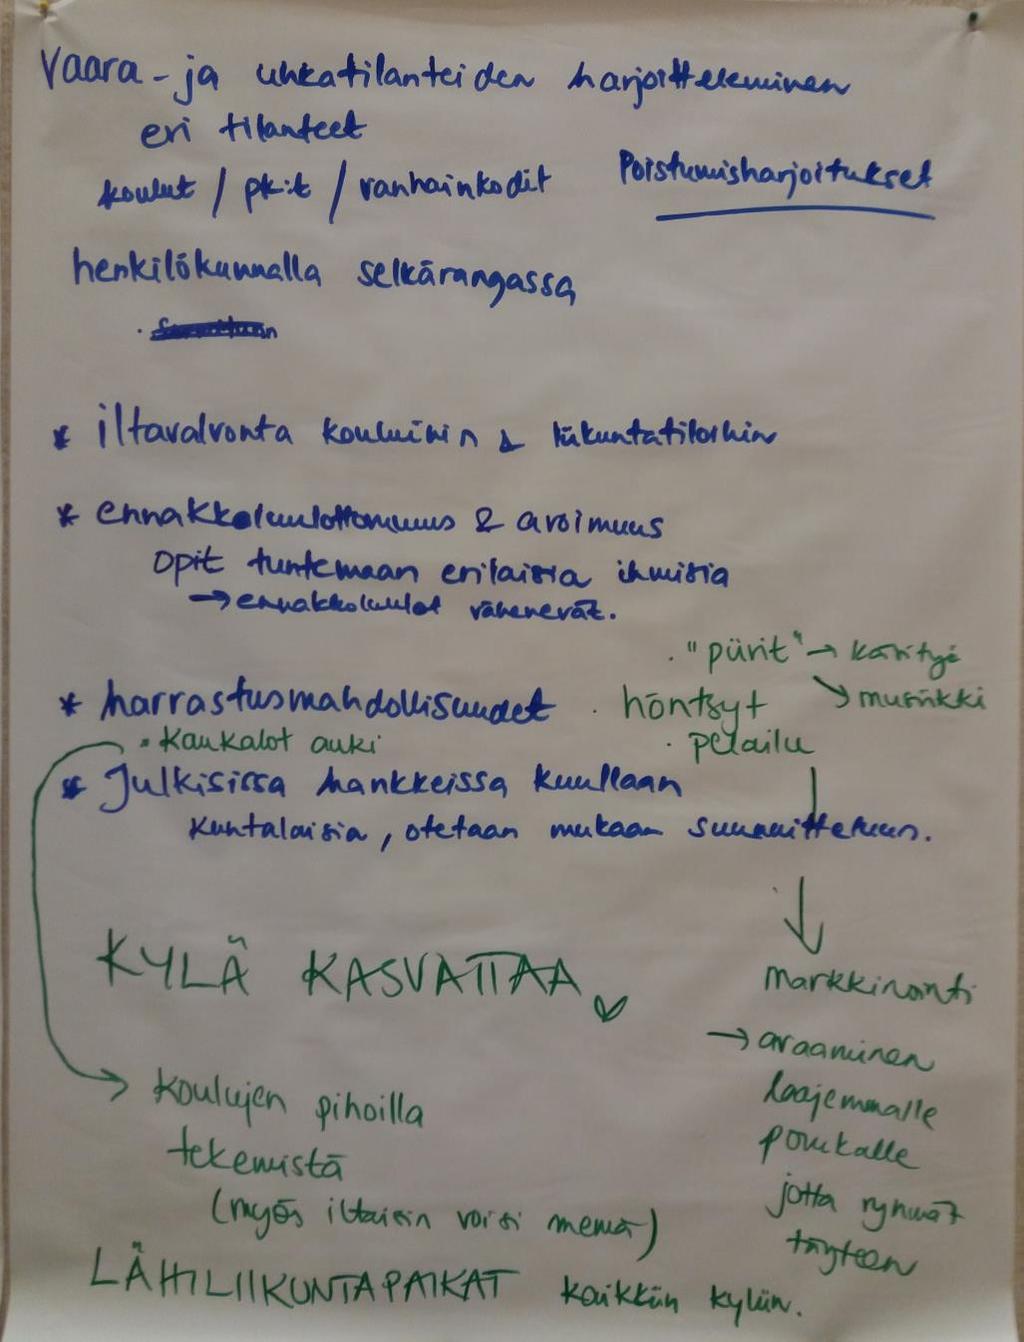 Vaara- ja uhkatilanteiden harjoitteleminen
eri tilanteet
koulut / pk:t / vanhainkodit
Poistumisharjoitukset
henkilökunnalla selkärangassa
* iltavalvonta kouluihin & liikuntatiloihin
* ennakkoluulottomuus & avoimuus
opit tuntemaan erilaisia ihmisiä
→ ennakkoluulot vähenevät.
* harrastusmahdollisuudet
· "piirit" → käsityö
↘ musiikki
· höntsyt
· pelailu
• Kaukalot auki
* Julkisissa hankkeissa kuullaan
kuntalaisia, otetaan mukaan suunnitteluun.
KYLÄ KASVATTAA
markkinointi
→ avaaminen
laajemmalle
porukalle
jotta ryhmät
täyteen
→ koulujen pihoilla
tekemistä
(myös iltaisin voisi mennä)
LÄHILIIKUNTAPAIKAT kaikkiin kyliin.